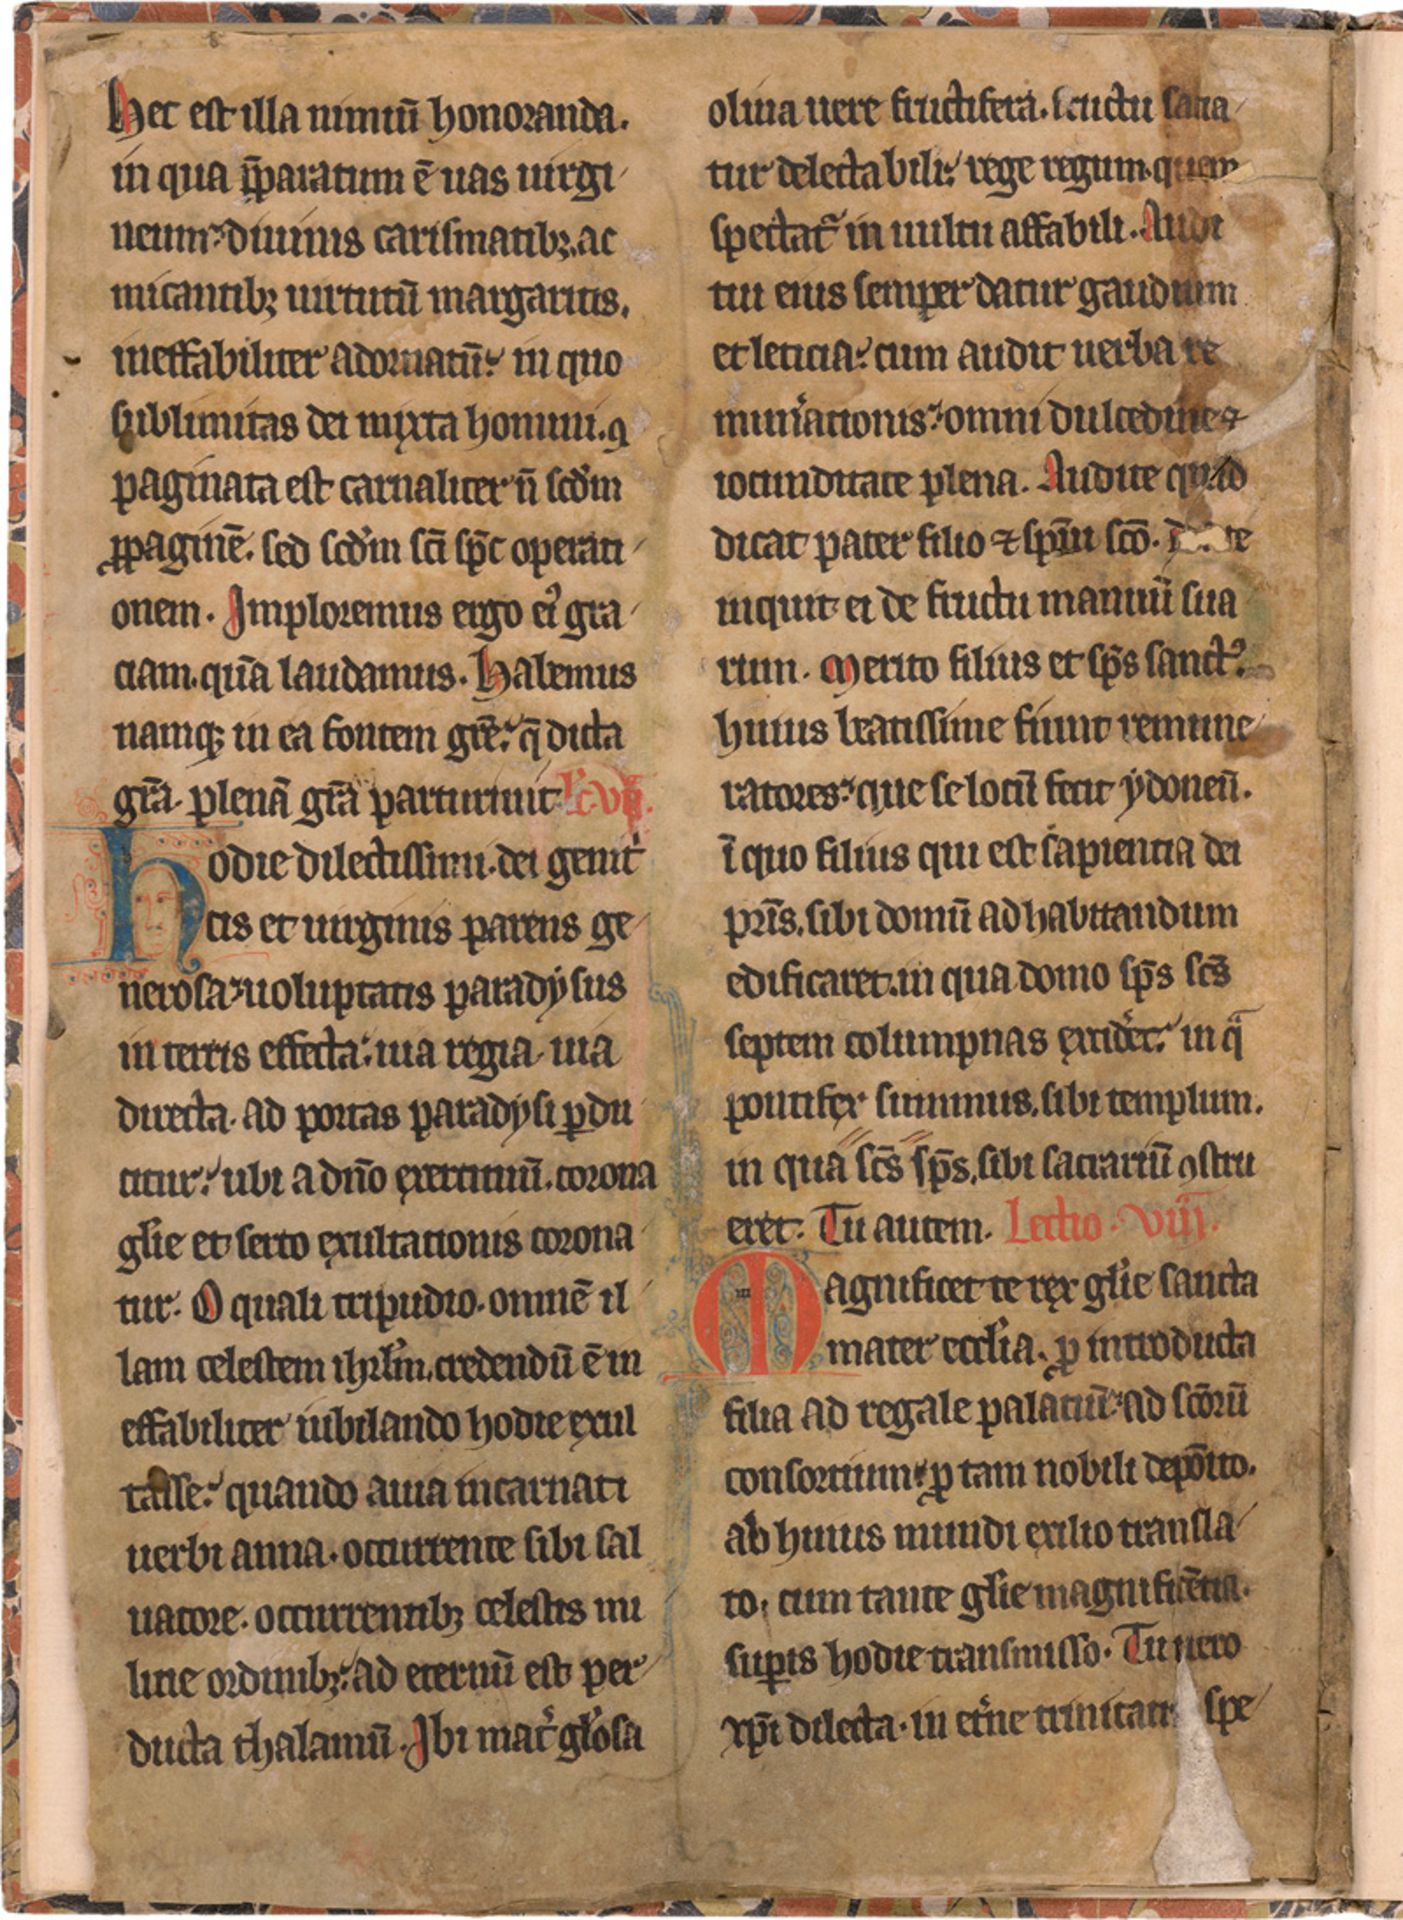 Hec est illa nimiū honoranda.
in qua p̄paratum ē uas uirgi
neum: diuinis carismatibꝫ. ac
micantibꝫ uirtutū margaritis.
ineffabiliter adornatū: in quo
sublimitas dei mixta homini. ꝯ
paginata est carnaliter n̄ scd̄m
ꝓpaginē. sed scd̄m sc̄i sp̄c operati
onem. Imploremus ergo ei᷒ gra
ciam. quā laudamus. Habemus
namqꝫ in ea fontem gr̄e: q̄ dicta
gr̄a plenā gr̄a parturiuit. Lc̄ vii.
hodie dilectissimi. dei genit
cis et uirginis parens ge
nerosa: uoluptatis paradysus
in terris effecta: uia regia. uia
directa. ad portas paradysi ꝑdu
citur: ubi a dn̄o exercituū. corona
gl̄ie et serto exultationis corona
tur. O quali tripudio. omnē il
lam celestem ihrl̄m. credendū ē in
effabiliter iubilando hodie exul
tasse: quando auia incarnati
uerbi anna. occurrente sibi sal
uatore. occurrentibꝫ celestis mi
licie ordinibꝫ: ad eternū est per
ducta thalamū. Ibi mat̄ gl̄osa
oliua uere fructifera. fructu sacia
tur delectabili: rege regum. quem
spectat᷑ in uultu affabili. Audi
tui eius semper datur gaudium
et leticia: cum audit uerba re
mun̄ationis: omni dulcedine ⁊
iocunditate plena. Audite quid
dicat pater filio ⁊ sp̄iu sc̄o. te
inquit ei de fructu manuū sua
rum. Merito filius et sp̄s sanct᷒
huius beatissime fiunt remune
ratores: que se locū fecit ydoneū.
ī quo filius qui est sapientia dei
pr̄is. sibi domū ad habitandum
edificaret. in qua domo sp̄s sc̄s
septem columpnas excid̄et: in q̄
pontifex summus. sibi templum.
in qua sc̄s sp̄s. sibi sacrariū ꝯstru
eret. Tu autem. Lectio. viii.
Magnificet te rex gl̄ie sancta
mater eccl̄ia. ꝓ introducta
filia ad regale palatiū: ad sc̄orū
consortium: ꝓ tam nobili depōito.
ab huius mundi exilio transla
to. cum tante gl̄ie magnificētia.
suꝑis hodie transmisso. Tu uero
xp̄i dilecta. in et̄ne trinitati spe